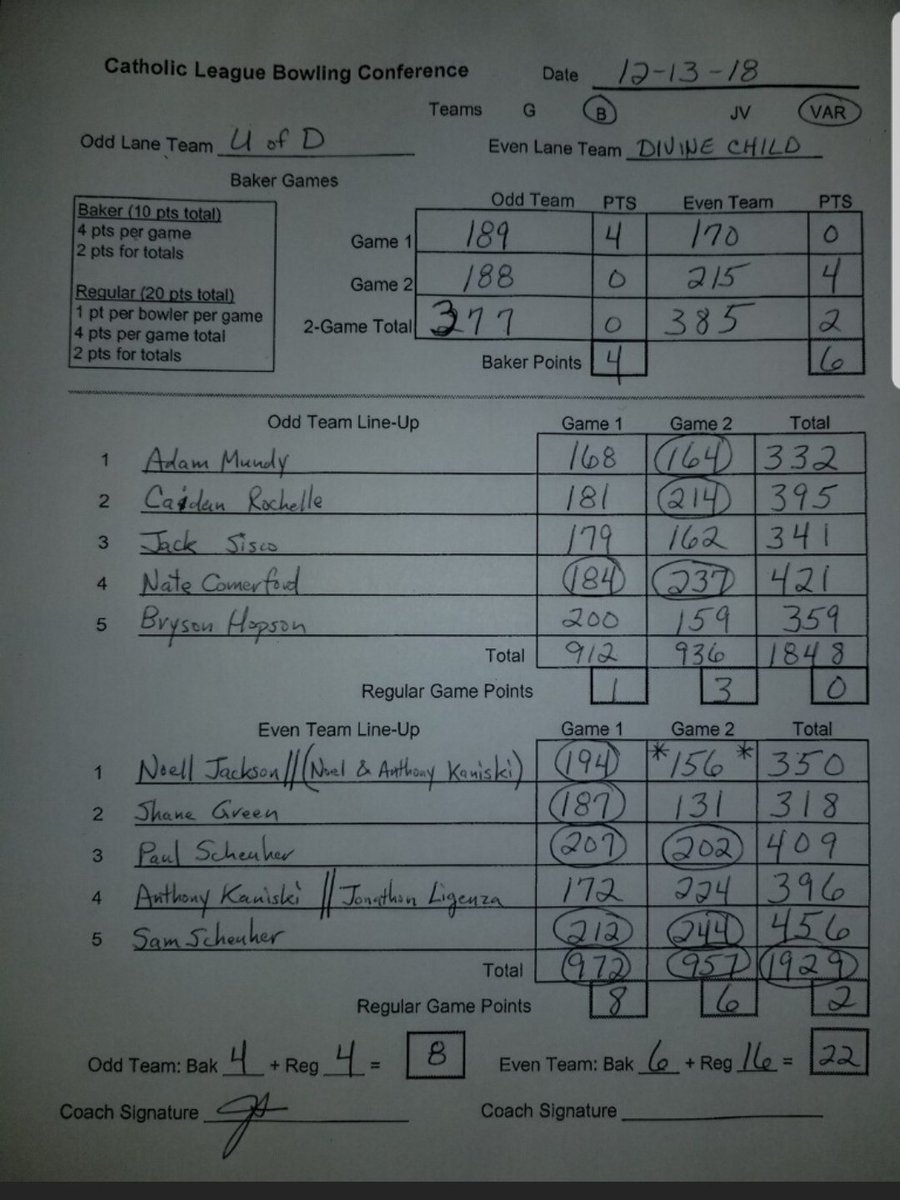 Catholic League Bowling Conference
Date 12-13-18
Teams G B JV VAR
Odd Lane Team U of D Even Lane Team DIVINE CHILD
Baker Games
Baker (10 pts total)
4 pts per game
2 pts for totals
Regular (20 pts total)
1 pt per bowler per game
4 pts per game total
2 pts for totals
Odd Team PTS Even Team PTS
Game 1 189 4 170 0
Game 2 188 0 215 4
2-Game Total 377 0 385 2
Baker Points 4 6
Odd Team Line-Up Game 1 Game 2 Total
1 Adam Mundy 168 164 332
2 Caiden Rochelle 181 214 395
3 Jack Sisco 179 162 341
4 Nate Comerford 184 237 421
5 Bryson Hopson 200 159 359
Total 912 936 1848
Regular Game Points 1 3 0
Even Team Line-Up Game 1 Game 2 Total
1 Noell Jackson//(Noel & Anthony Kaniski) 194 *156* 350
2 Shane Green 187 131 318
3 Paul Scheuher 207 202 409
4 Anthony Kaniski // Jonathon Ligenza 172 224 396
5 Sam Scheuher 212 244 456
Total 972 957 1929
Regular Game Points 8 6 2
Odd Team: Bak 4 + Reg 4 = 8 Even Team: Bak 6 + Reg 16 = 22
Coach Signature Coach Signature